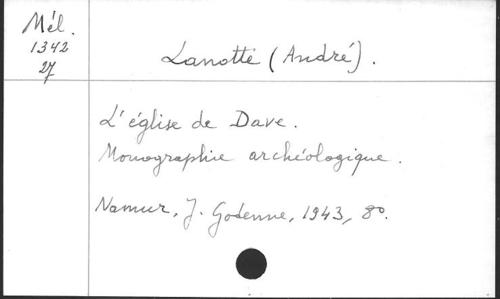 Mél.
1342
27
Lanotte (André).
L'église de Dave.
Monographie archéologique.
Namur, J. Godenne, 1943, 8º.